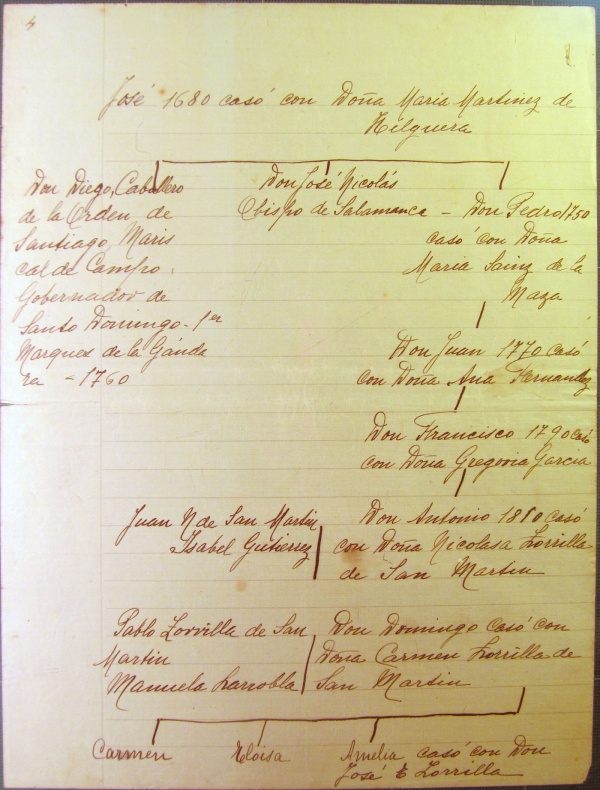 José 1680 casó con Doña Maria Martinez de
Helguera
Don Diego, Caballero
de la Orden de
Santiago, Maris
cal de Campo,
Gobernador de
Santo Domingo - 1er
Marques de la Gánda
ra - 1760
Don José Nicolás
Obispo de Salamanca -
Don Pedro 1750
casó con Doña
Maria Sainz de la
Maza
Don Juan 1770 casó
con Doña Ana Fernandez
Don Francisco 1790 casó
con Doña Gregoria Garcia
Juan N de San Martin
Isabel Gutierrez
Don Antonio 1810 casó
con Doña Nicolasa Zorrilla
de San Martin
Pablo Zorrilla de San
Martin
Manuela Larrobla
Don Domingo casó con
Doña Carmen Zorrilla de
San Martin
Carmen
Eloisa
Amelia casó con Don
José Zorrilla